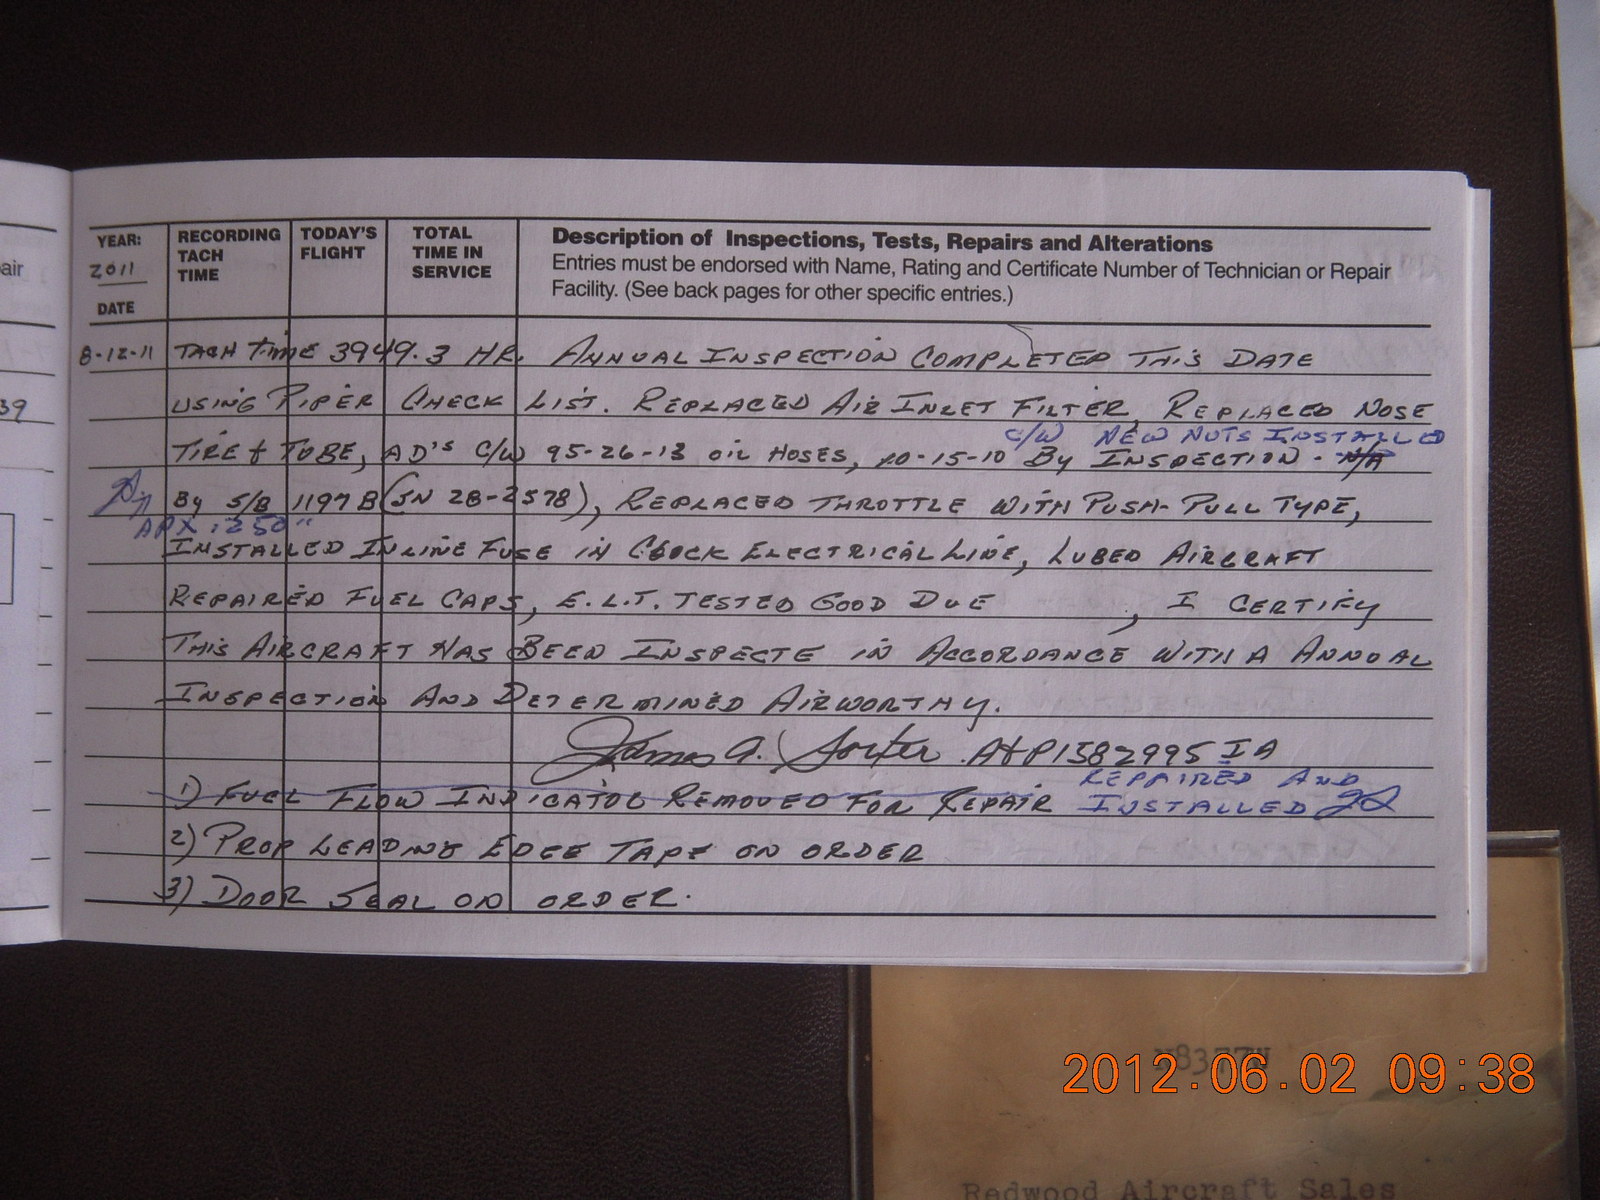 air
39
YEAR:
2011
DATE
RECORDING
TACH
TIME
TODAY'S
FLIGHT
TOTAL
TIME IN
SERVICE
Description of Inspections, Tests, Repairs and Alterations
Entries must be endorsed with Name, Rating and Certificate Number of Technician or Repair
Facility. (See back pages for other specific entries.)
8-12-11 TACH TIME 3949.3 HR. ANNUAL INSPECTION COMPLETED THIS DATE
USING PIPER CHECK LIST. REPLACED AIR INLET FILTER, REPLACED NOSE
C/W NEW NUTS INSTALLED
TIRE & TUBE, AD'S C/W 95-26-13 OIL HOSES, 10-15-10 BY INSPECTION - N/A
BY S/B 1197B (SN 28-2578), REPLACED THROTTLE WITH PUSH-PULL TYPE,
APX .250"
INSTALLED INLINE FUSE IN CLOCK ELECTRICAL LINE, LUBED AIRCRAFT
REPAIRED FUEL CAPS, E.L.T. TESTED GOOD DUE , I CERTIFY
THIS AIRCRAFT HAS BEEN INSPECTE IN ACCORDANCE WITH A ANNUAL
INSPECTION AND DETERMINED AIRWORTHY.
James A. A&P1582995 IA
REPAIRED AND
1) FUEL FLOW INDICATOR REMOVED FOR REPAIR INSTALLED
2) PROP LEADING EDGE TAPE ON ORDER
3) DOOR SEAL ON ORDER.
N8377W
2012.06.02 09:38
Redwood Aircraft Sales